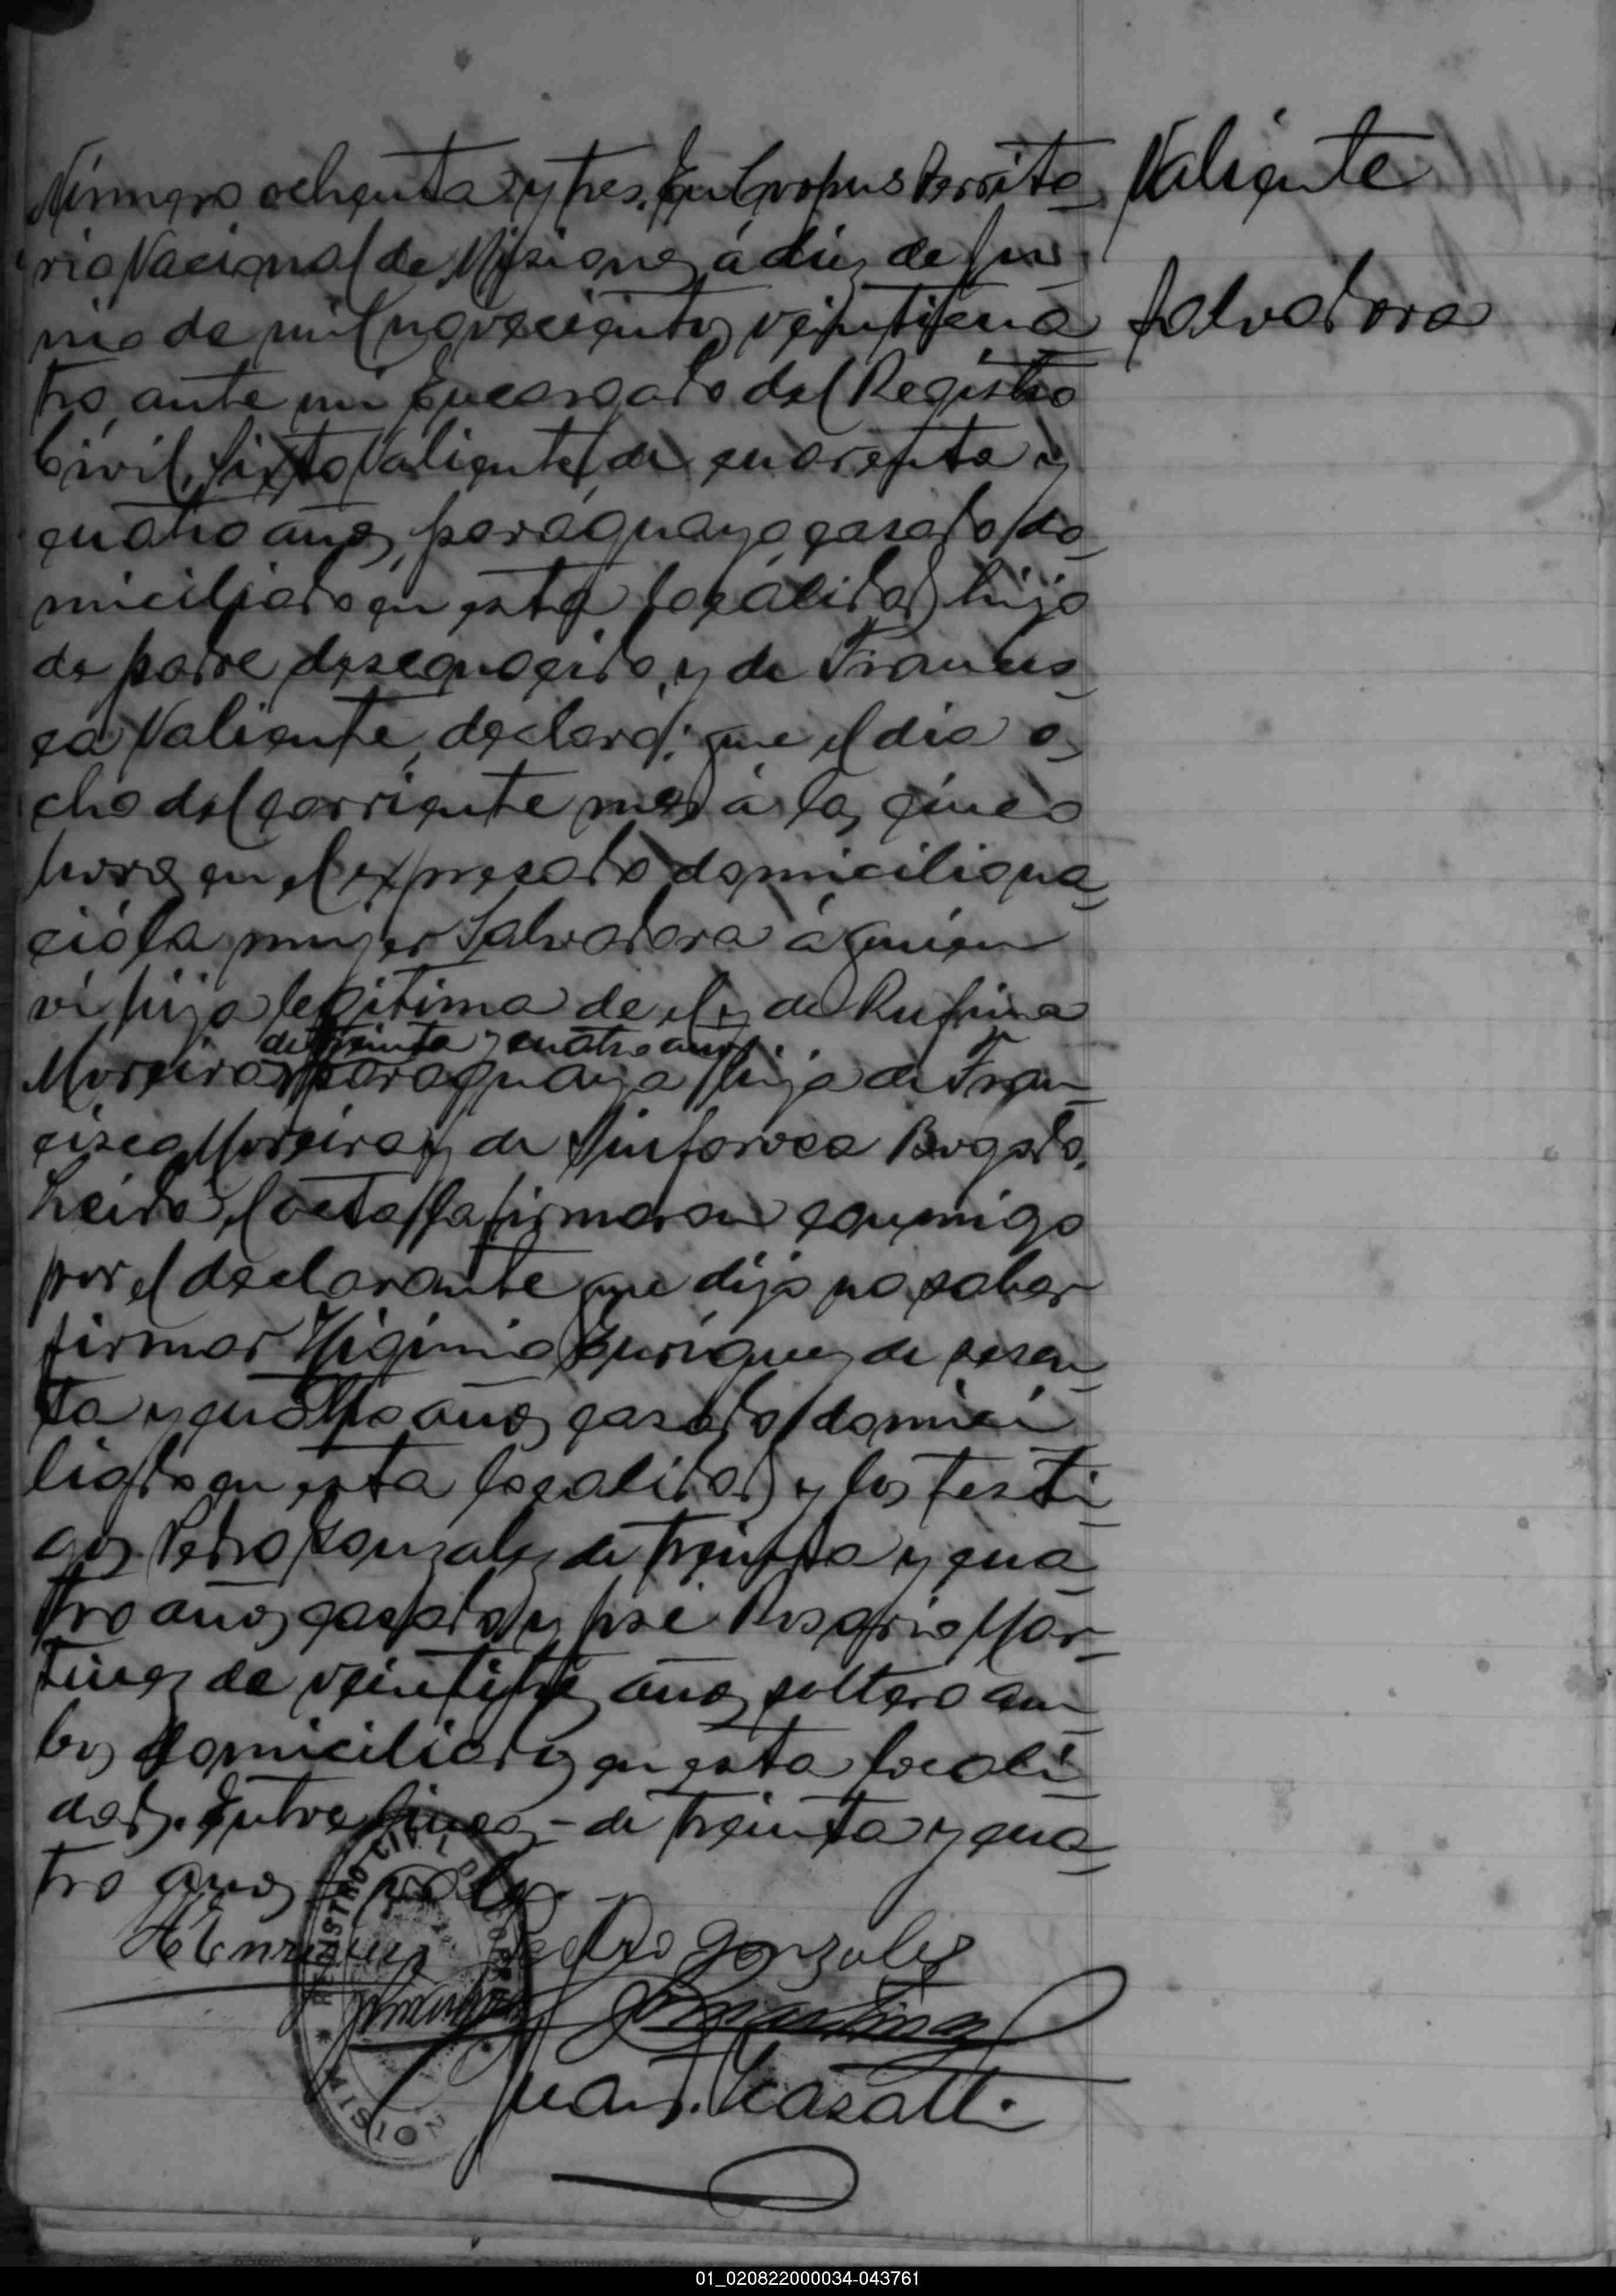 Número ochenta y tres. En Corpus Territo
Valiente
rio Nacional de Misiones, á diez de Ju
Salvadora
nio de mil novecientos veinticua
tro, ante mi Encargado del Registro
Civil, Sixto Valiente, de cuarenta y
cuatro años, paraguayo, casado, do
miciliado en esta localidad, hijo
de padre desconocido, y de Francis
ca Valiente, declaró: que el dia o
cho del corriente mes á las cinco
horas en el expresado domicilio na
ció la mujer Salvadora á quien
vi hija legítima de el y de Rufina
de treinta y cuatro años
Moreira, paraguaya, hija de Fran
cisco Moreira y de Sinforosa Bogado.
Leida el acta, la firmaron conmigo
por el declarante que dijo no saber
firmar Higinio Enriquez de sesen
ta y cuatro años, casado, domici
liado en esta localidad y los testi
gos Pedro Gonzalez de treinta y cua
tro años, casado, y José Rosario Mar
tinez de veintitres años, soltero am
bos domiciliados en esta locali
dad. Entre lineas - de treinta y cua
tro años - vale.
H Enriquez Pedro Gonzalez
Martinez
Juan Casatti
REGISTRO CIVIL DE CORPUS
MISION
01_020822000034-043761